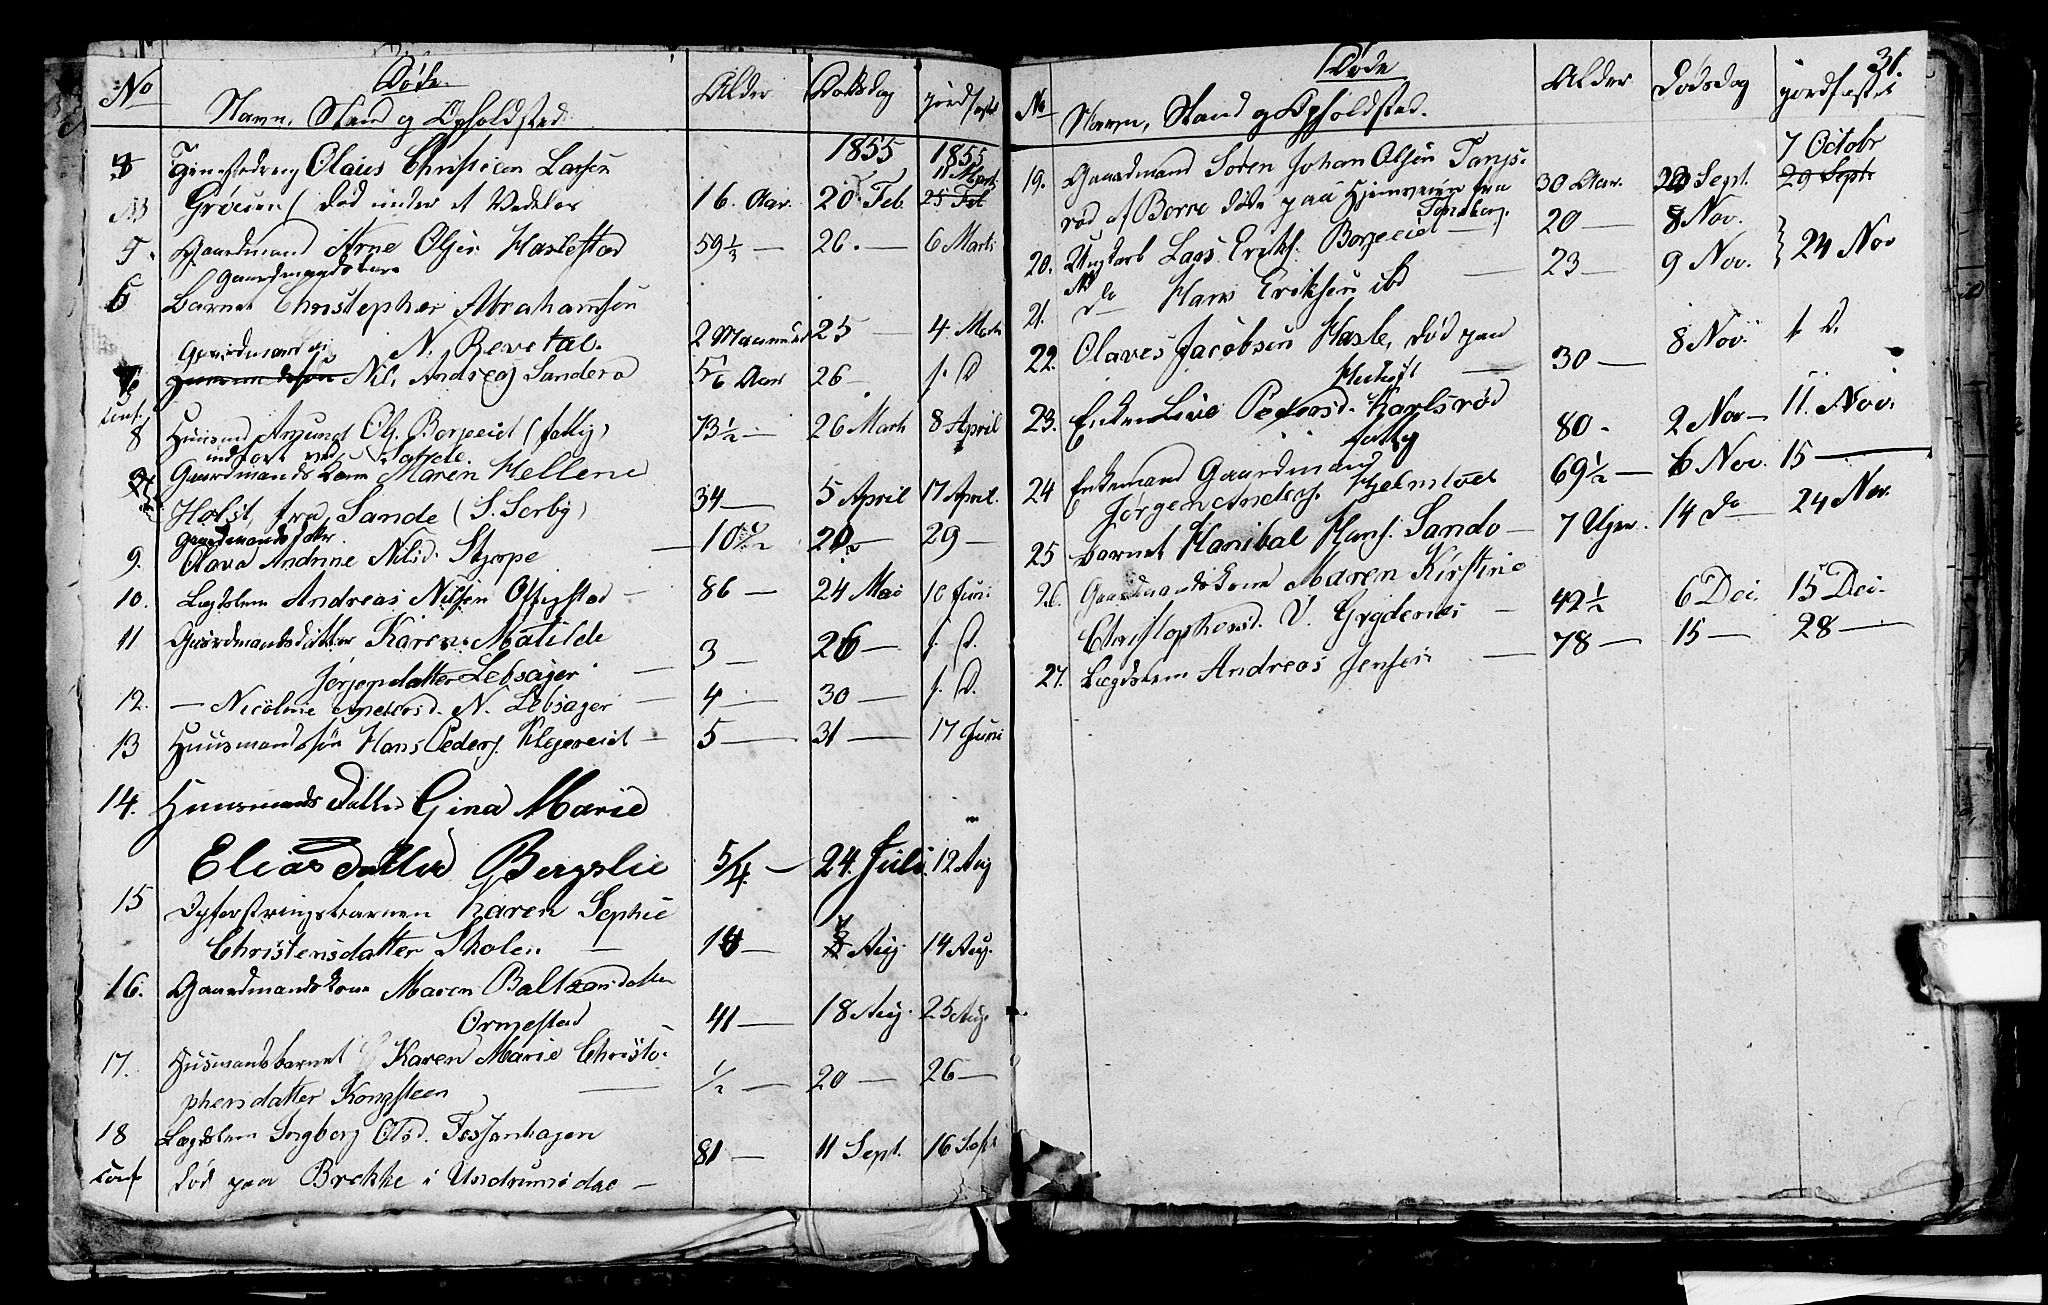 No
Døde
Navn, Stand og Opholdsted
Alder
Dødsdag
jordfæstet
1855 1855
4 Tjenestedreng Olaus Christian Larsen
11 Marts
NB Grøsen (død under et Vedelæs 16. Aar. 20 Feb. 25 Feb
5. Gaardmand Arne Olsen Haslestad 59½ — 26. — 6 Marts
Gaardmands
6 Barnet Christopher Abrahamsøn
N. Revetal. 2 Maaneder 25 — 4 Marts
Gaardmand
7 Nils Andreas Sandero 5/6 Aar 26 — s. D
conf.
8 Huusmd Amund Ols. Borgeeid (fattig) 73½ — 26 Marts 8 April
indført ved Sande
Gaardmandskone Maren Hellene
Holst, fra Sande (S. Serby) 34 — 5 April 17 April
Gaardmandsdatter
9. Olava Andrine Nilsd. Stjerpe — 10 — 20 — 29 —
10. Lægdslem Andreas Nilsen Oftestad — 86 — 24 Mai 10 Juni
11 Gaardmandsdatter Karen Matilde
Jørgendatter Lebsager — 3 — 26 — s. D.
12. — Nicoline Andersd. N. Lebsager — 4 — 30 — s. D.
13 Huusmandssøn Hans Peders. Klejereid — 5 — 31 — 17 Juni
14. Huusmands Datter Gina Marie
Elias datter Bergslie 5/4 — 24. Juli. 12 Aug
15 Opfostringsbarnen Karen Sophie
Christensdatter Skolen — 14 — 7 Aug. 14 Aug.
16. Gaardmandskone Maren Baltzersdatter
Ormestad 41 — 18 Aug. 25 Aug.
17. Husmandsbarnet Karen Marie Christo-
phersdatter Kongsteen — ½ — 20 — 26 —
18 Lægdslem Ingborg Olsd. Fossanhagen
conf død paa Brekke i Undrumsdal — 81 — 11 Sept. 16 Sept
31.
No
Døde
Navn, Stand og Opholdsted.
Alder
Dødsdag
jordfæstet
7 Octobr
19. Gaardmand Søren Johan Olsen Tangs-
rød af Borre døde paa Hjemveien fra 30 Aar. 23 Sept. 29 Sept.
Tønsberg.
20. Ungkarl Lars Eriks. Borgeeid — 20 — 8 Nov.
NB
21. do Hans Eriksen ibd — 23 — 9 Nov. } 24 Nov
22. Olaves Jacobsen Hasle, død paa
— 30 — 8 Nov. s. D.
23. Enken Live Pedersd. Karlsrød
fattig 80 - 2 Nov — 11. Nov.
24 Enkemand Gaardmand
Jørgen Anders. Hjelmtvet 69½ — 6 Nov. 15 —
25 Barnet Hanibal Hans. Sando — 7 Uger. 14 do 24 Nov.
26. Gaardmandskone Maren Kirstine
Christophersd. V. Grydenes — 42½ 6 Dec. 15 Dec.
27. Lægdslem Andreas Jensen — 78 — 15 — 28 —